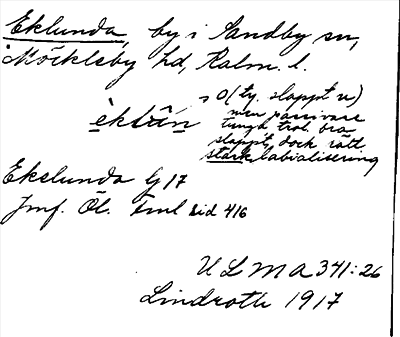 Eklunda, by i Sandby sn,
Möckleby hd, Kalm. l.
èklūn
slappt u)
men passivare
tunga trol. bra
slappt, dock rätt
stark labialisering
Ekelunda G 17
Jmf. Öl. Fml sid 416
ULMA 341:26
Lindroth 1917